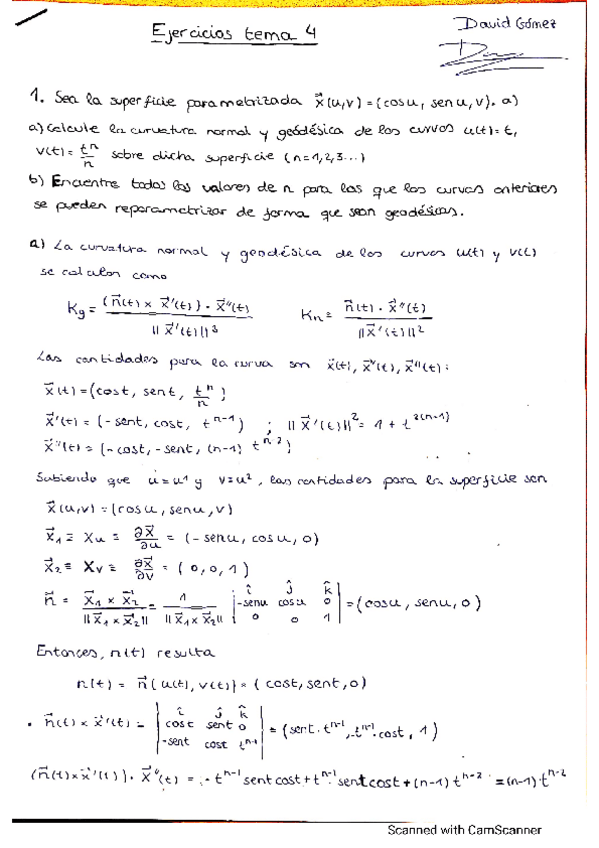 Ejercicios tema 4
David Gómez
1. Sea la superficie parametrizada x⃗(u,v) = (cosu, senu, v). a)
a) Calcule la curvatura normal y geodésica de las curvas u(t)=t,
v(t)= tⁿ/n sobre dicha superficie (n=1,2,3...)
b) Encuentre todos los valores de n para las que las curvas anteriores
se pueden reparametrizar de forma que sean geodésicas.
a) La curvatura normal y geodésica de las curvas u(t) y v(t)
se calculan como
Kg = (n⃗(t) × x⃗'(t)) · x⃗''(t) / ||x⃗'(t)||³    Kn = n⃗(t) · x⃗''(t) / ||x⃗'(t)||²
Las cantidades para la curva son x⃗(t), x⃗'(t), x⃗''(t):
x⃗(t) = (cost, sent, tⁿ/n)
x⃗'(t) = (-sent, cost, tⁿ⁻¹) ; ||x⃗'(t)||² = 1 + t²⁽ⁿ⁻¹⁾
x⃗''(t) = (-cost, -sent, (n-1) tⁿ⁻²)
Sabiendo que u=u¹ y v=u², las cantidades para la superficie son
x⃗(u,v) = (cosu, senu, v)
x⃗₁ ≡ xu ≡ ∂x⃗/∂u = (-senu, cosu, 0)
x⃗₂ ≡ xv ≡ ∂x⃗/∂v = (0, 0, 1)
n⃗ = x⃗₁ × x⃗₂ / ||x⃗₁ × x⃗₂|| = 1 / ||x⃗₁ × x⃗₂|| | î ĵ k̂ ; -senu cosu 0 ; 0 0 1 | = (cosu, senu, 0)
Entonces, n(t) resulta
n(t) = n⃗(u(t), v(t)) = (cost, sent, 0)
· n⃗(t) × x⃗'(t) = | î ĵ k̂ ; cost sent 0 ; -sent cost tⁿ⁻¹ | = (sent · tⁿ⁻¹, -tⁿ⁻¹ · cost, 1)
(n⃗(t) × x⃗'(t)) · x⃗''(t) = - tⁿ⁻¹ sent cost + tⁿ⁻¹ sent cost + (n-1) tⁿ⁻² = (n-1) · tⁿ⁻²
Scanned with CamScanner